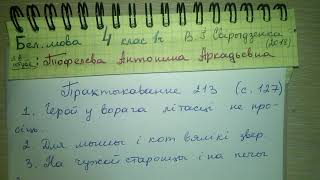 Бел. мова 4 клас 1ч В. І. Свірыдзенка
(2018)
: Тофелева Антонина Аркадьевна
Практыкаванне 213 (с. 127)
1. Герой у ворага літасці не про-
сіць.
2. Для мышы і кот вялікі звер.
3. На чужой старонцы і на печы